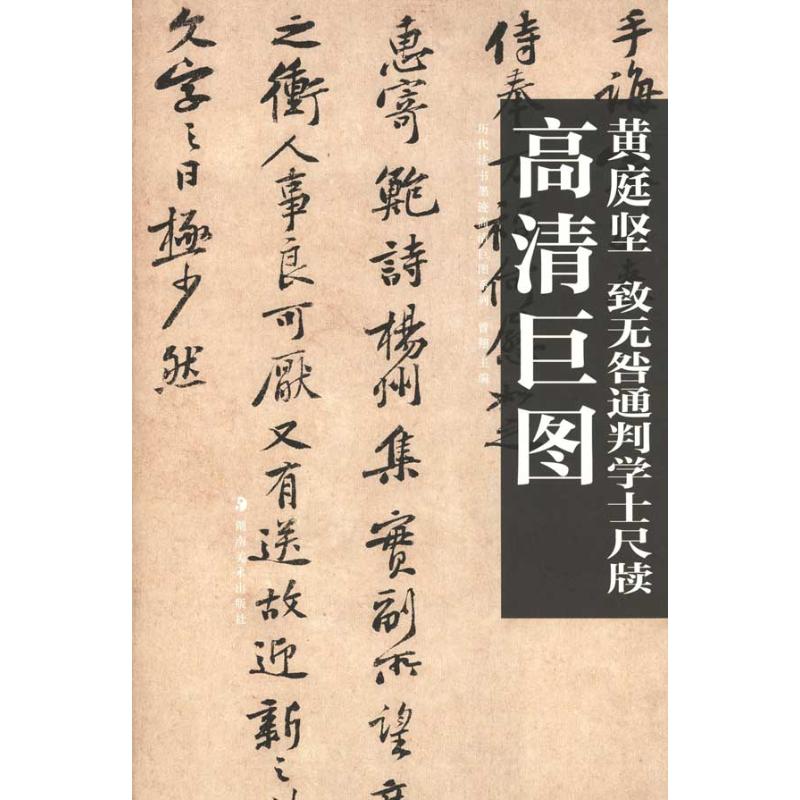 黄庭坚 致无咎通判学士尺牍
高清巨图
历代法书墨迹高清巨图系列 曾翔 主编
湖南美术出版社
手诲
侍奉万福何慰如之
惠寄鲍詩楊州集實副所望
之衝人事良可厭又有送故迎新之
久字之日極少然